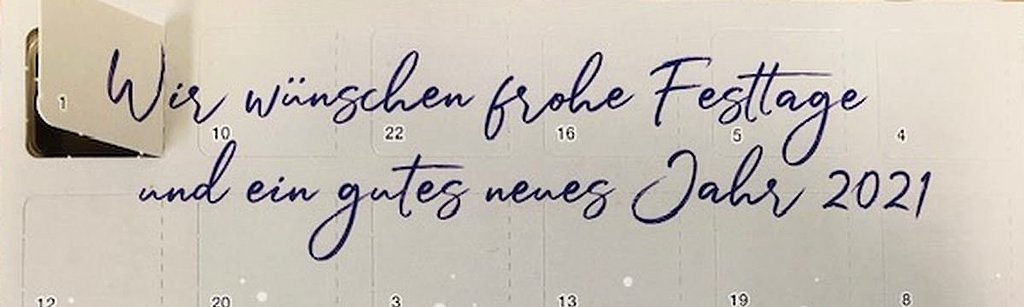 Wir wünschen frohe Festtage
1 10 22 16 5 4
und ein gutes neues Jahr 2021
12 20 3 13 19 8